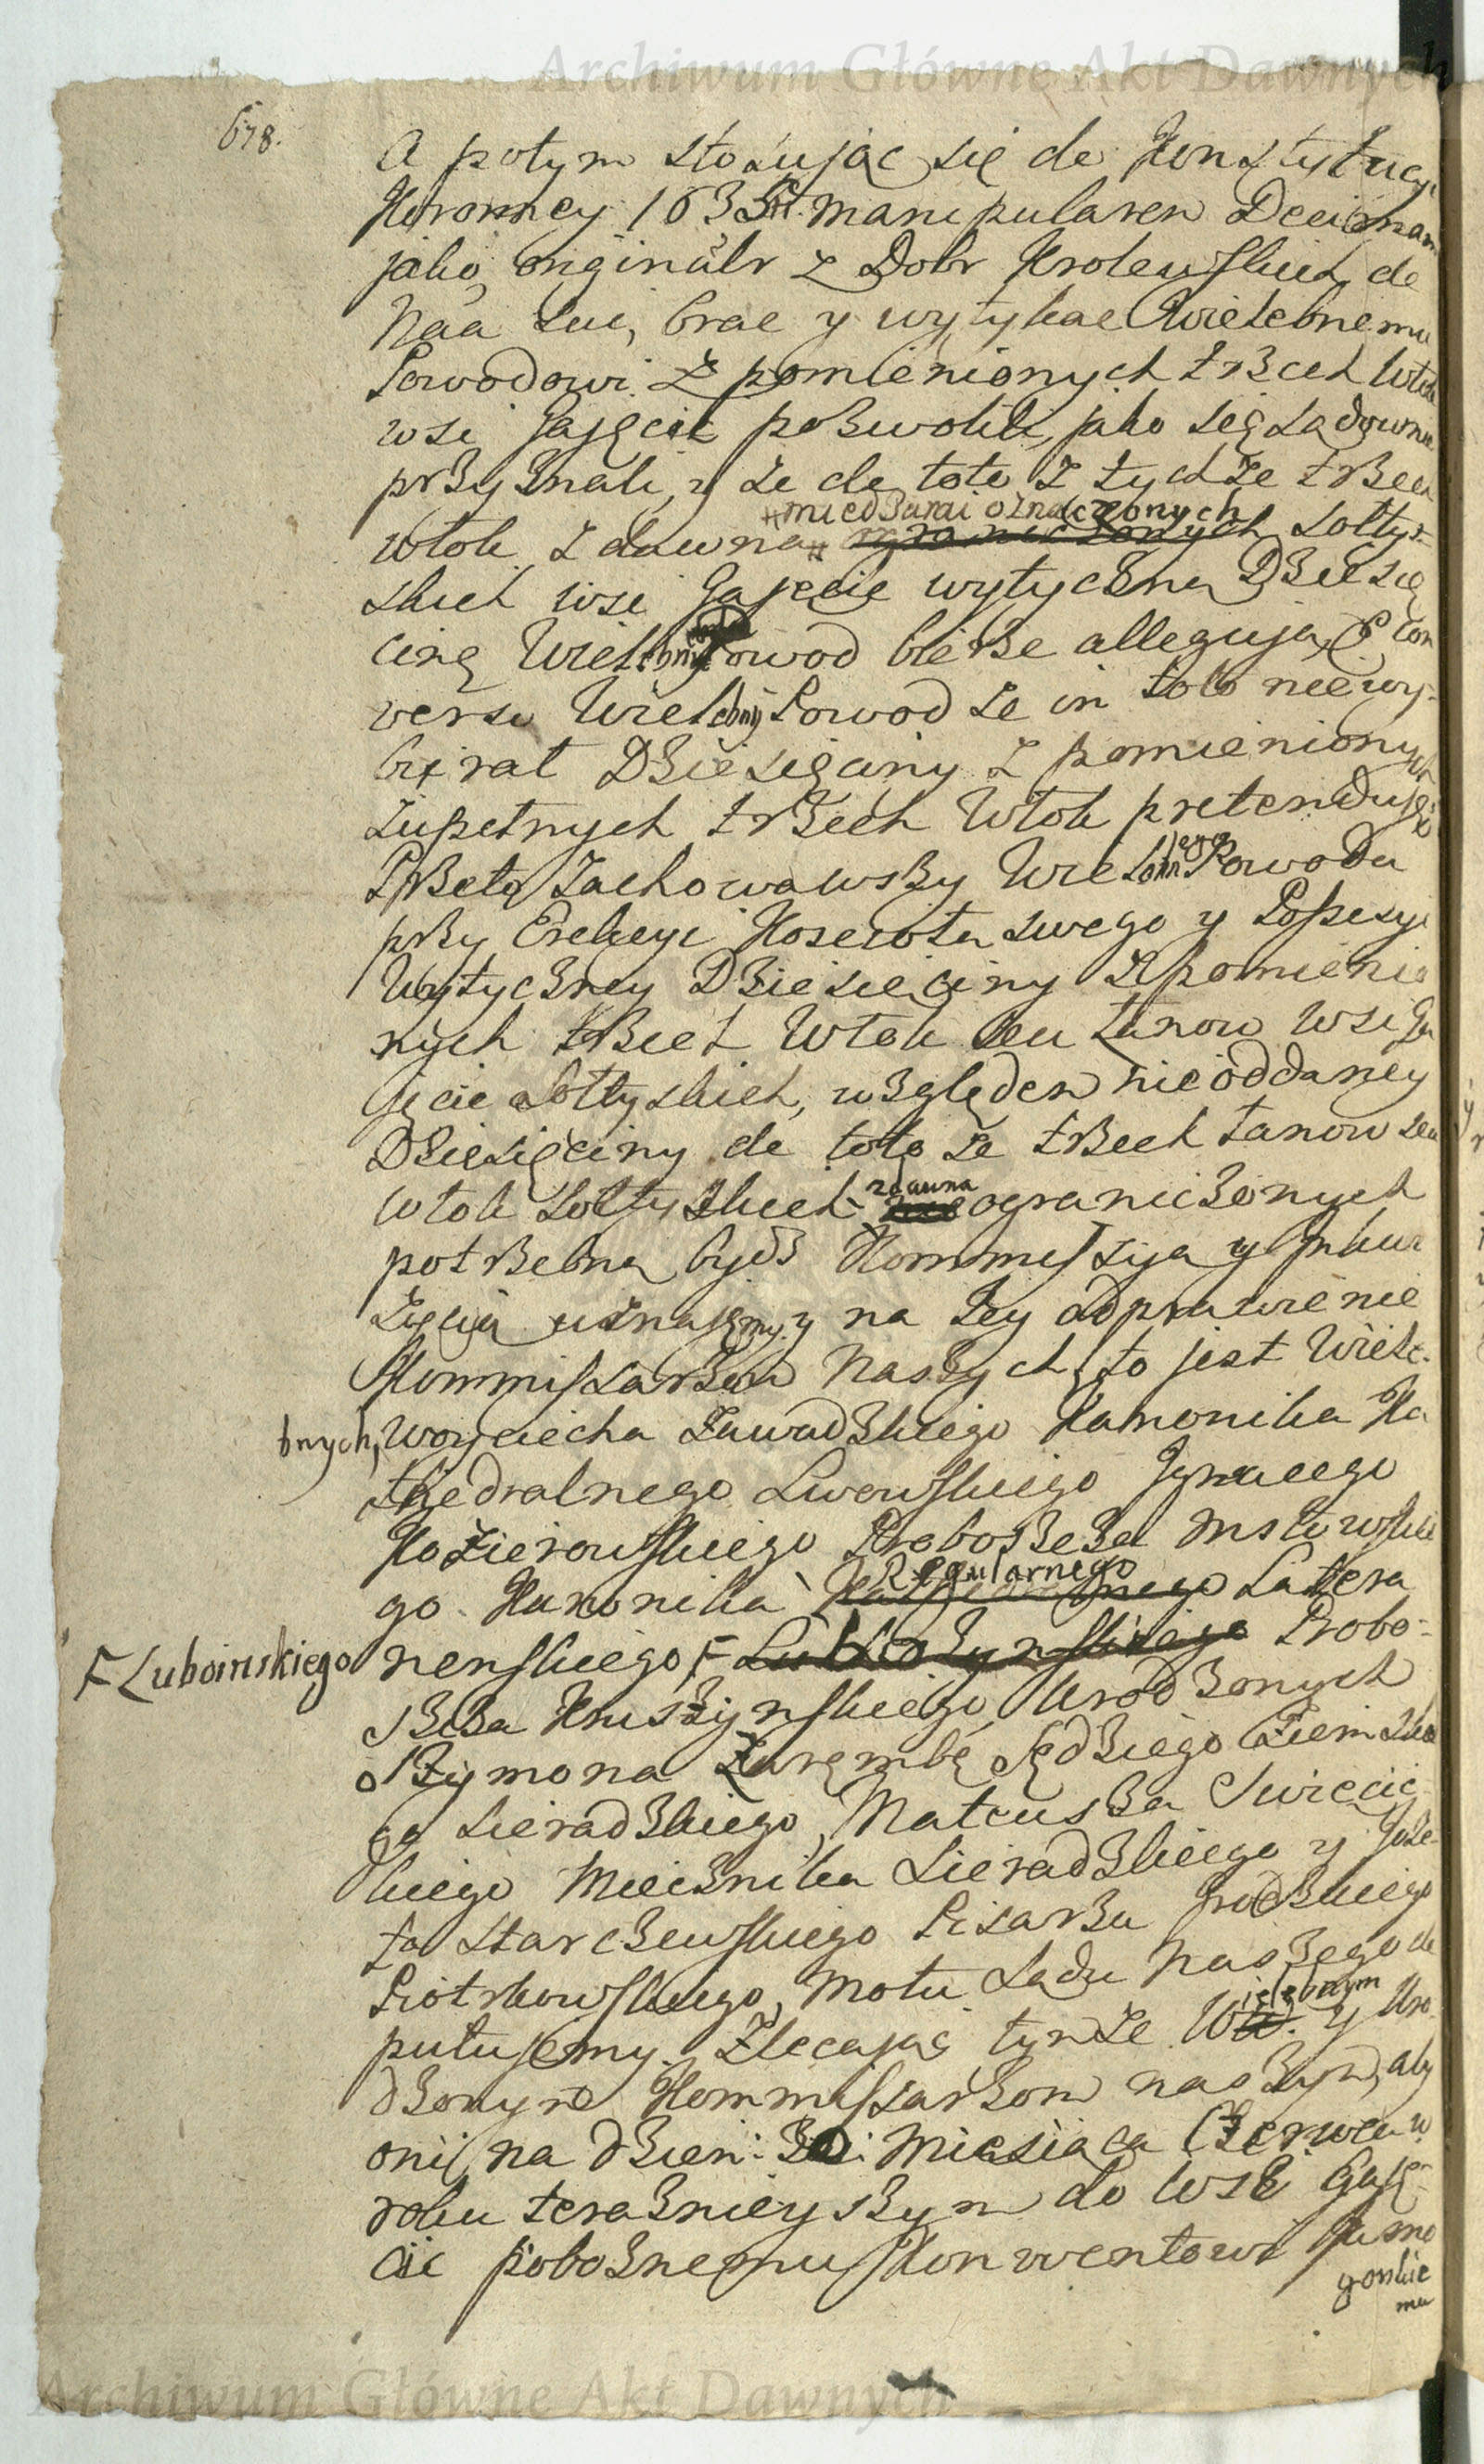 Archiwum Główne Akt Dawnych
678.
A potym stosując się do Konstytucyi
Koronney 1635 manipularem Decimam
jako z Dobr Krolewskich de
brac y wytykac Wielebnemu
Powodowi z pomienionych trzech Włok
wsi Gajęcic pozwolili, jako się sądownie
przyznali, y że de toto z tychże trzech
# miedzami oznaczonych
włok z dawna # ograniczonych Sołtys-
skich wsi Gajęcic wytyczną Dziesię
cinę Wielebny Powod bierze allegują, E con
verso Wielebny Powod że in toto niewy-
bierał Dziesięciny z pomienionych
zupełnych trzech Włok pretenduje
Przeto Zachowawszy Wielebnego Powoda
przy Erekcyi Koscioła swego y Possesyi
Wytyczney Dziesięciny z pomienio
nych trzech Włok seu Łanow wsi Ga
jęcic Sołtyskich, względem nieoddaney
Dziesięciny de toto ze trzech Łanow seu
Włok Sołtyskich zdawna ograniczonych
potrzebną bydz Kommissyą y Inkwi
zycyą uznajemy y na Jey odprawienie
Kommissarzow Naszych, to jest Wiele-
bnych, Woyciecha Zawadzkiego Kanonika Ka
thedralnego Lwowskiego Ignacego
Kozierowskiego Proboszcza Mstowskie
go Kanonika Regularnego Latera
nenskiego, F Probo-
F Luboinskiego
szcza Kruszynskiego, Urodzonych
Szymona Zarębę Sędziego Ziemskie
go Sieradzkiego, Mateusza Swięcic
kiego Miecznika Sieradzkiego y Joze-
fa Starczewskiego Pisarza Grodzkiego
Piotrkowskiego, Motu Sądu Naszego de
putujemy. Zlecając tymże Wielebnym y Uro-
dzonym Kommissarzom naszym, aby
oni na dzien: Miesiąca Czerwca w
roku teraznieyszym do Wsi Gaję-
cic pobożnemu Konwentowi